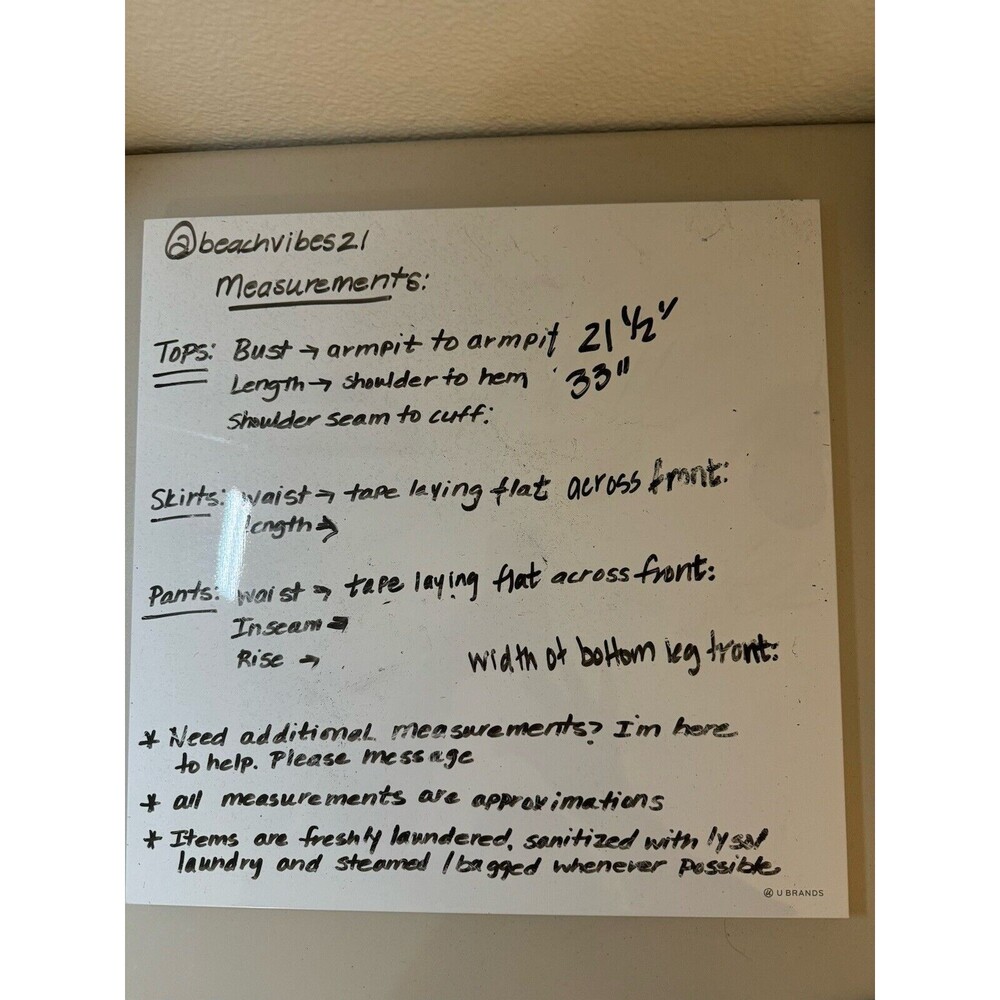 @beachvibes21
Measurements:
Tops: Bust → armpit to armpit 21 1/2"
Length → shoulder to hem 33"
Shoulder seam to cuff:
Skirts: waist → tape laying flat across front:
Length →
Pants: waist → tape laying flat across front:
Inseam →
Rise → width of bottom leg front:
* Need additional measurements? I'm here
to help. Please message
* all measurements are approximations
* Items are freshly laundered, sanitized with lysol
laundry and steamed / bagged whenever possible
U BRANDS